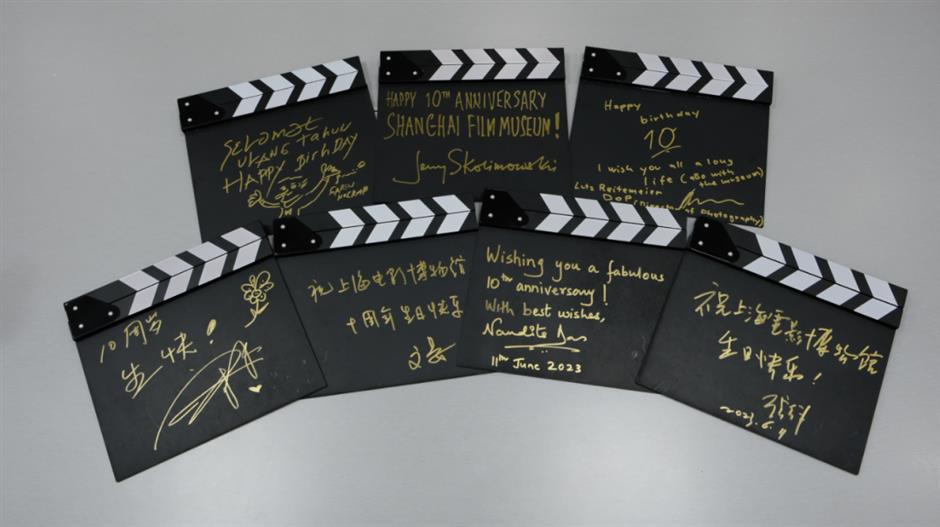 Selamat
ULANG TAHUN
HAPPY BIRTHDAY
HAPPY 10TH ANNIVERSARY
SHANGHAI FILM MUSEUM!
Jerzy Skolimowski
Happy
birthday
10
I wish you all a long
life (also with
the museum)
Luts Reitemeier
DoP (Director of Photography)
10周岁
生快!
祝上海电影博物馆
十周年生日快乐
Wishing you a fabulous
10th anniversary!
With best wishes,
Nandita Das
11th June 2023
祝上海電影博物馆
生日快乐!
2023.6.11